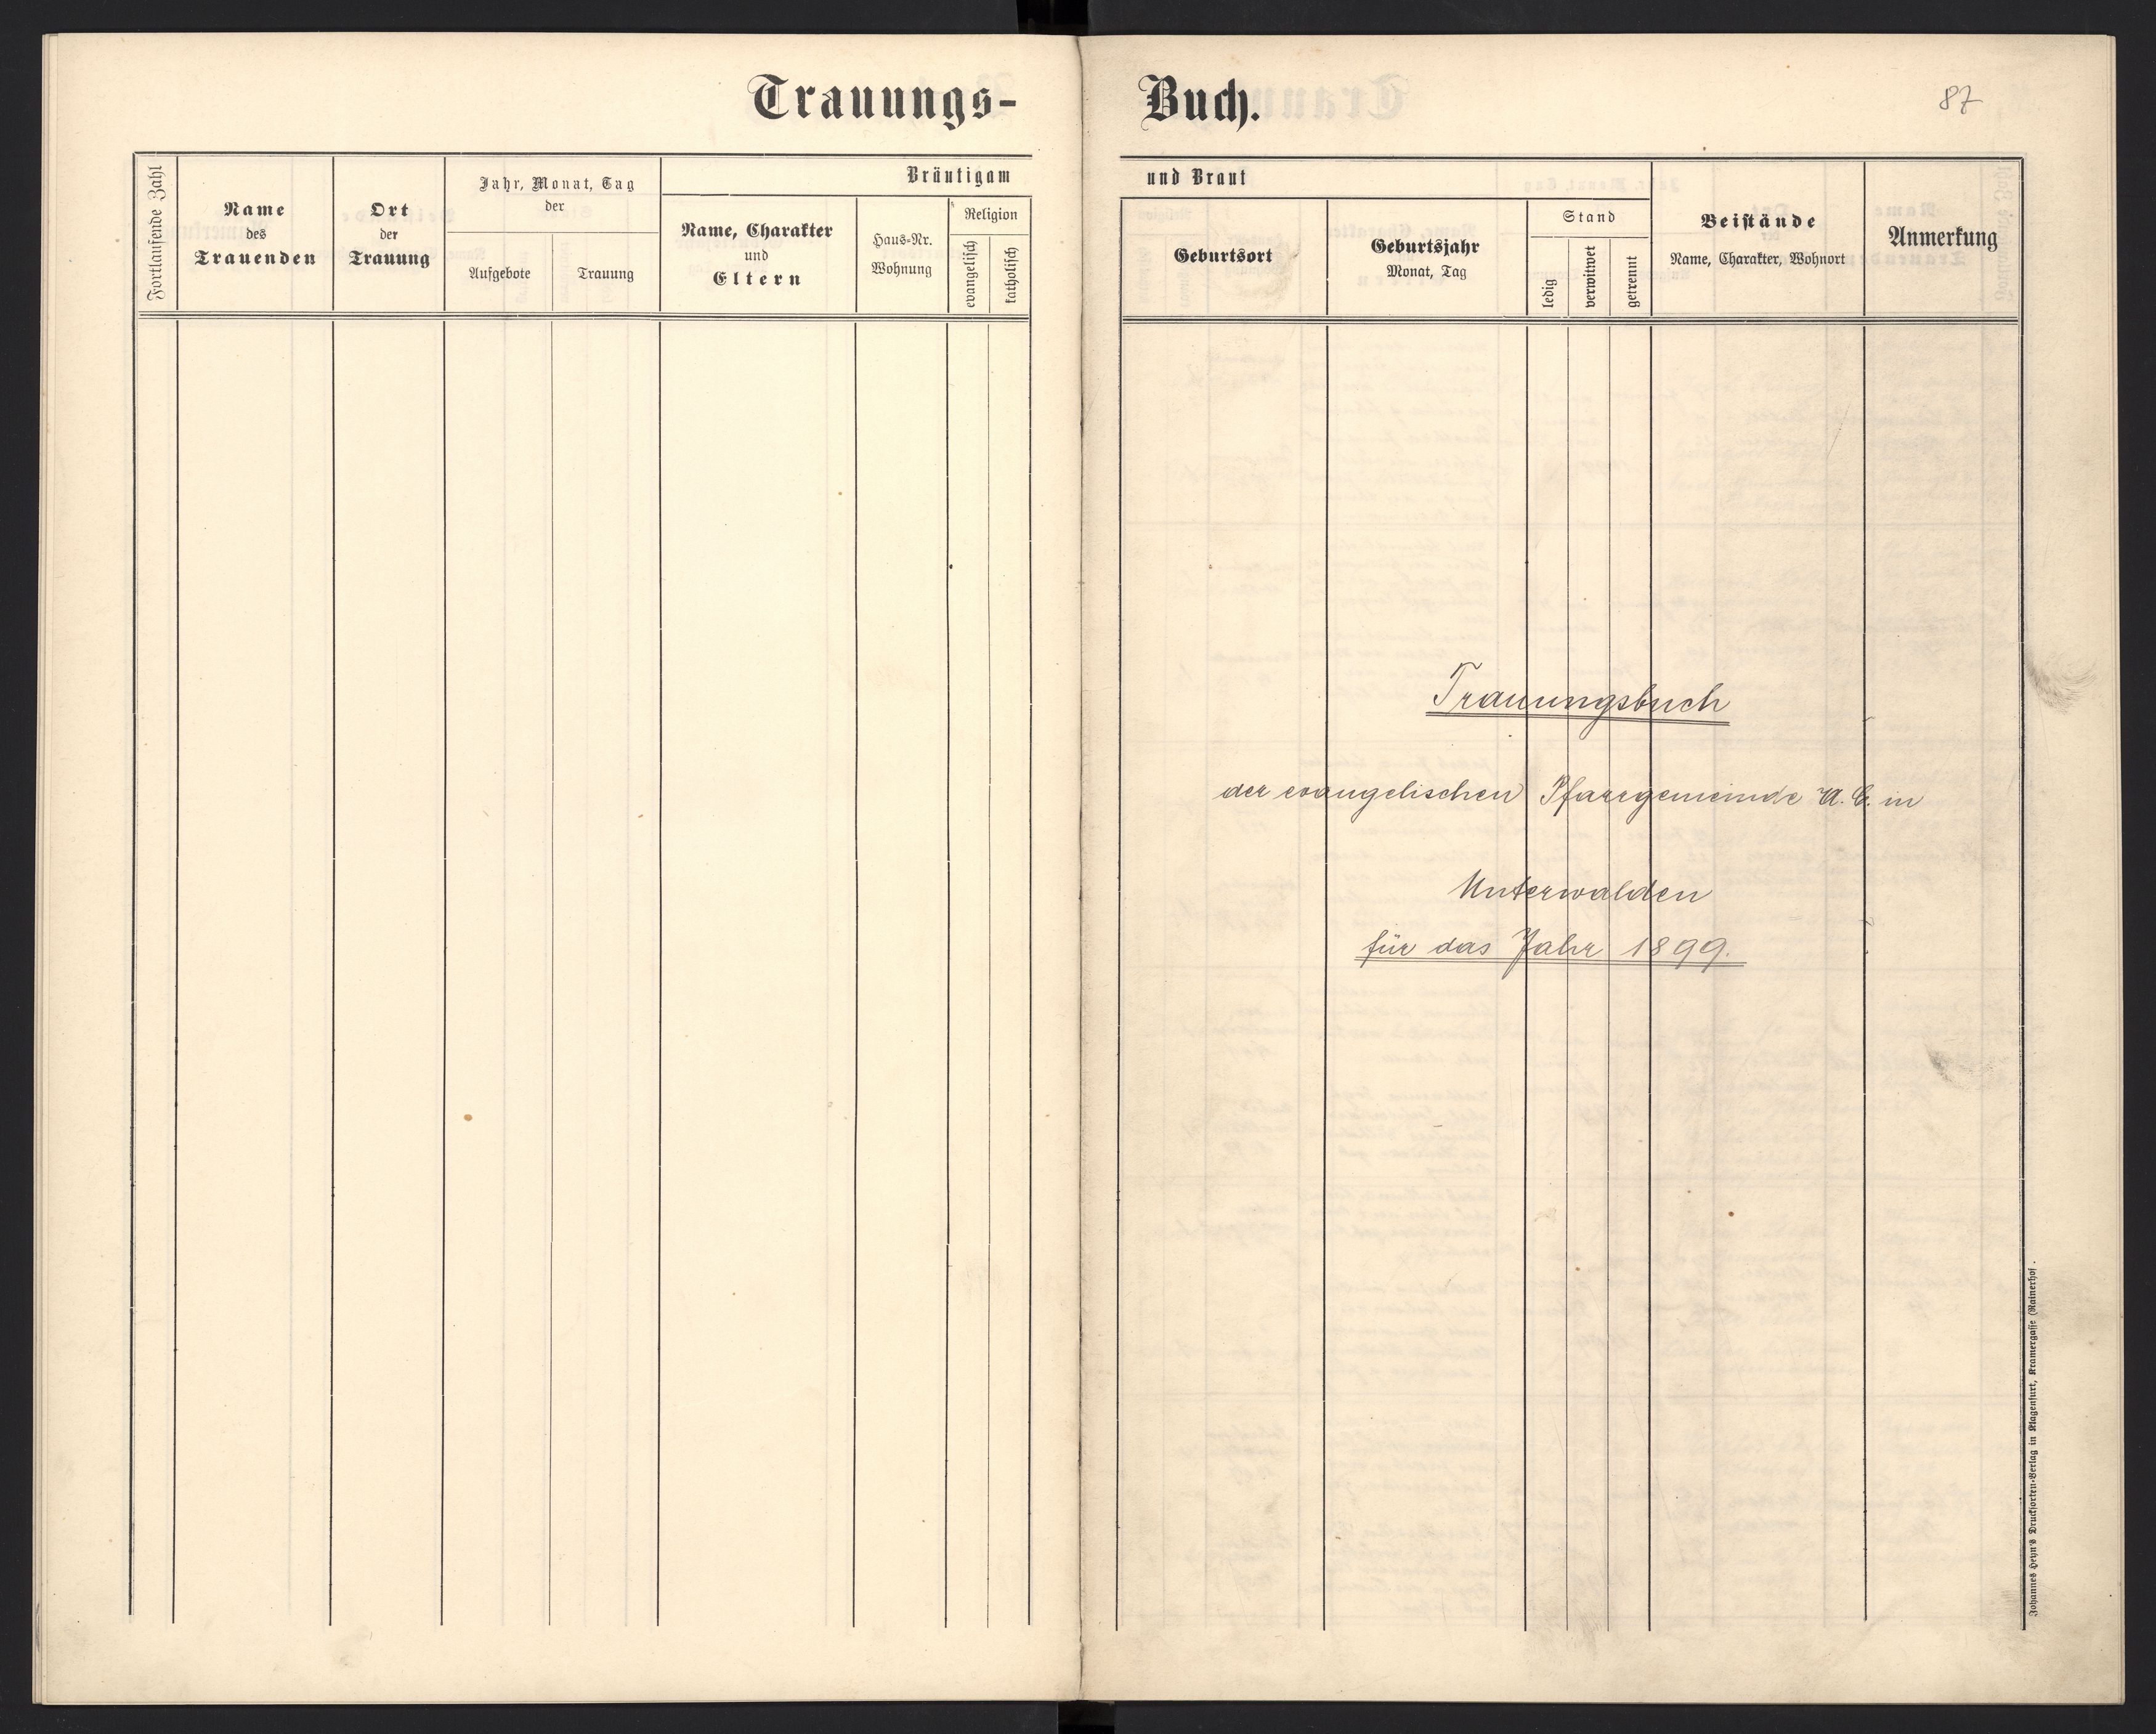 Trauungs-
Buch.
87
Fortlaufende Zahl
Name
des
Trauenden
Ort
der
Trauung
Jahr, Monat, Tag
der
Aufgebote
Trauung
Bräutigam
Name, Charakter
und
Eltern
Haus-Nr.
Wohnung
Religion
evangelisch
katholisch
und Braut
Geburtsort
Geburtsjahr
Monat, Tag
Stand
ledig
verwitwet
getrennt
Beistände
Name, Charakter, Wohnort
Anmerkung
Trauungsbuch
der evangelischen Pfarrgemeinde A. C. in
Unterwalden
für das Jahr 1899.
Johannes Heyn's Drucksorten-Verlag in Klagenfurt, Kramergasse (Rainerhof.